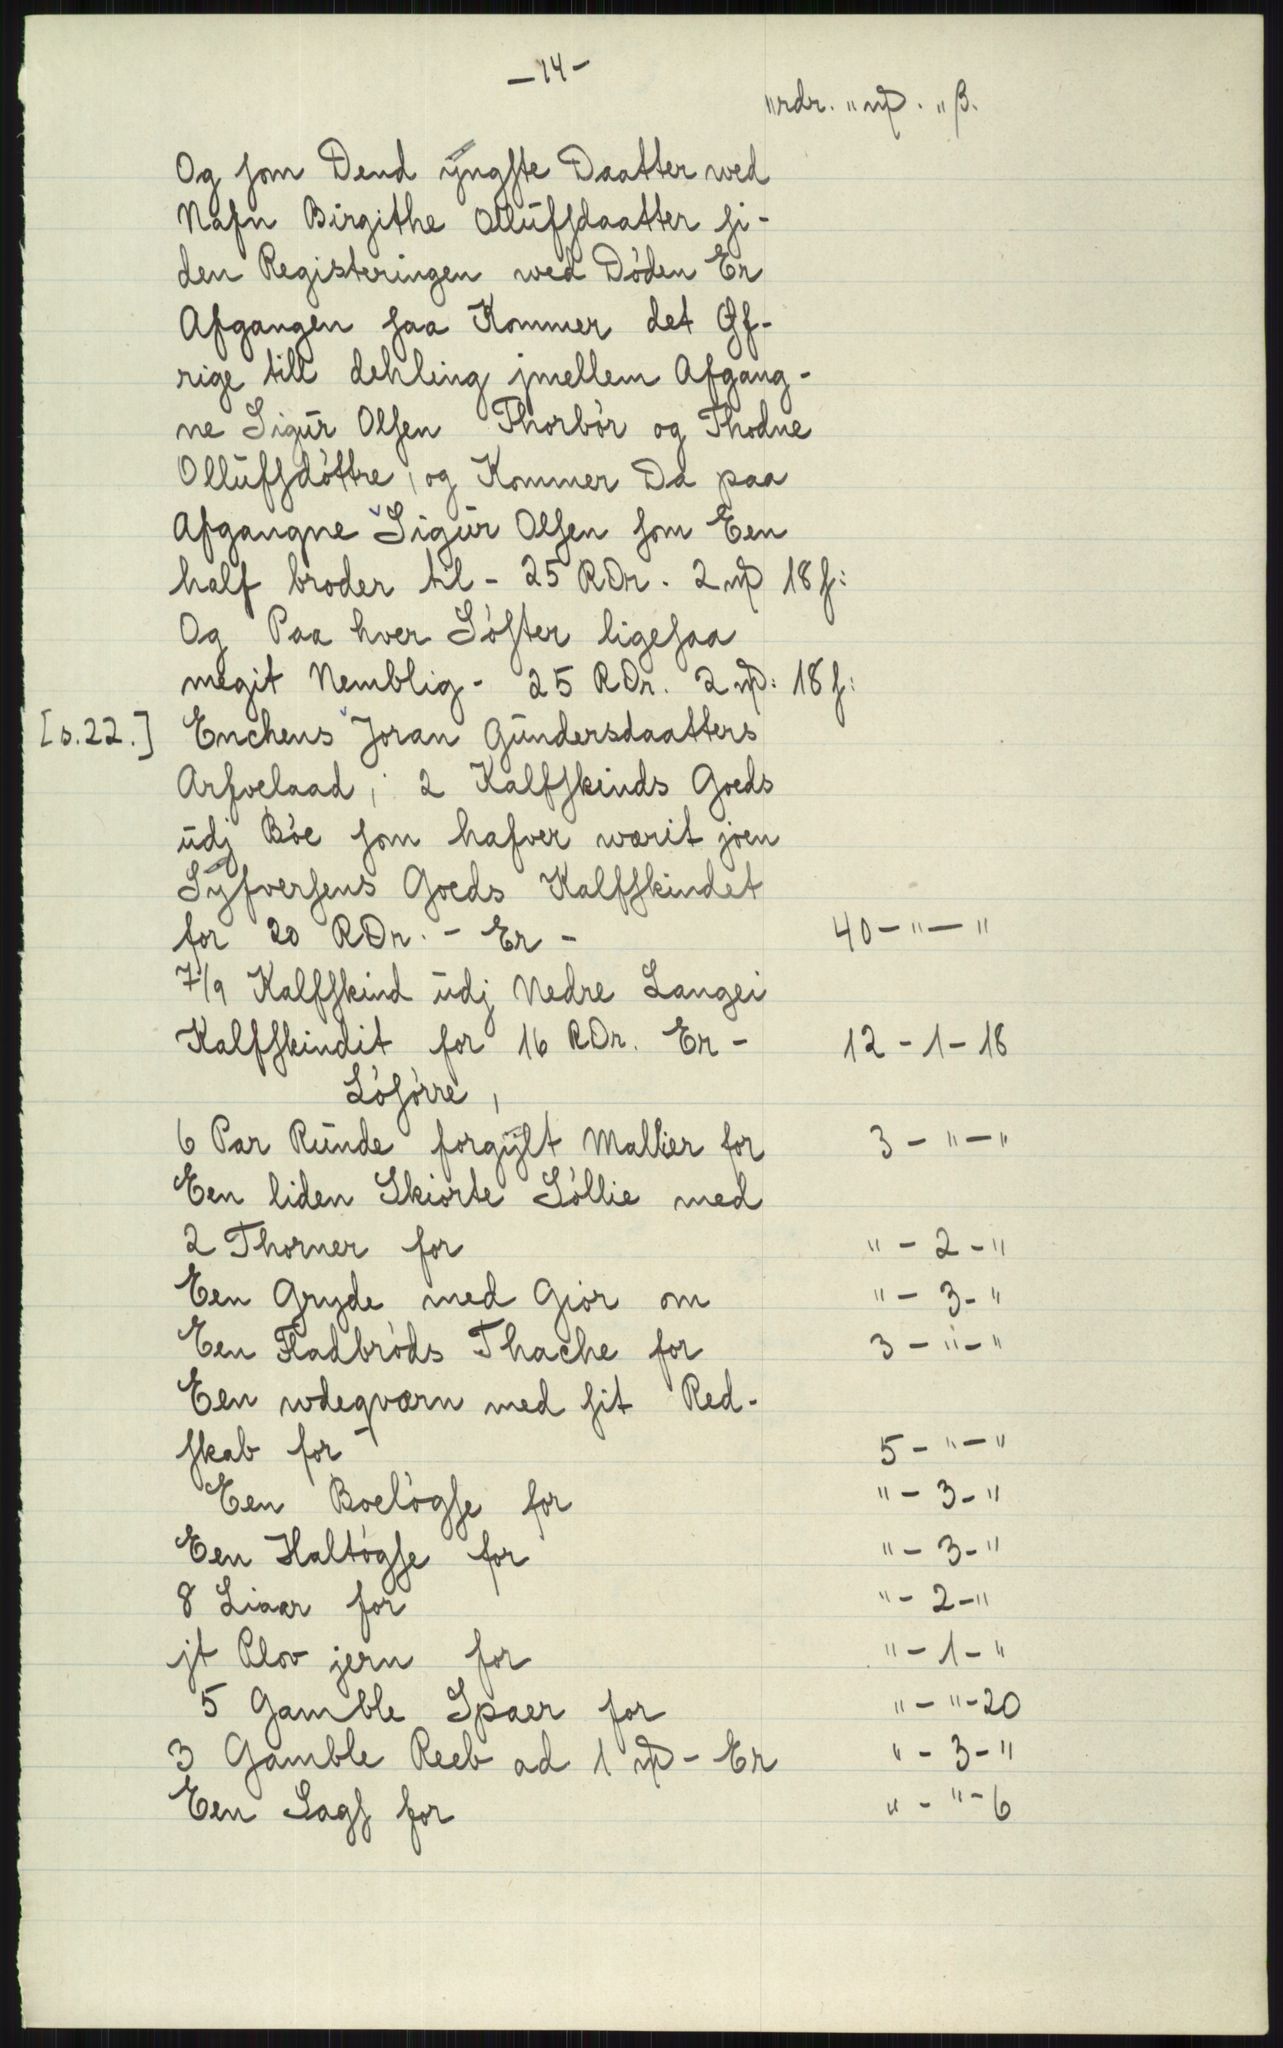 —14—
"rdr. "mþ. "β.
Og som Dend ÿngste Daatter wed
Nafn Birgithe Ollufsdaatter si-
den Registeringen wed Döden Er
Afgangen saa Kommer det Øf-
rige till dehling jmellem Afgang-
ne Sigur Olsen Thorbör og Thodne
Ollufsdöttre, og Kommer Da paa
Afgangne Sigur Olsen som Een
half broder til - 25 RDr. 2 mþ 18 s:
Og Paa hver Söster ligesaa
megit Nemblig - 25 RDr. 2 mþ: 18 s:
[s.22.] Enchens Joran Gundersdaatters
Arfvelaad, 2 Kalfskinds Goeds
udj Böe som hafver wærit joen
Sÿfversens Goeds Kalfskindet
for 20 RDr. - Er - 40 - " - "
7/9 Kalfskind udj Nedre Langei
Kalfskindit for 16 RDr. Er - 12 - 1 - 18
Lösörre,
6 Par Runde forgÿlt Mallier for 3 - " - "
Een liden Skiorte Söllie med
2 Thorner for " - 2 - "
Een Gryde med Giör om " - 3 - "
Een Fladbröds Thache for 3 - " - "
Een wdeqværn med sit Red-
skab for - 5 - " - "
Een Boelögse for " - 3 - "
Een Haltögse for " - 3 - "
8 Liaar for " - 2 - "
jt Plov jern for " - 1 - "
5 Gamble Spaer for " - " - 20
3 Gamble Reeb ad 1 mþ - Er " - 3 - "
Een Sags for " - " - 6